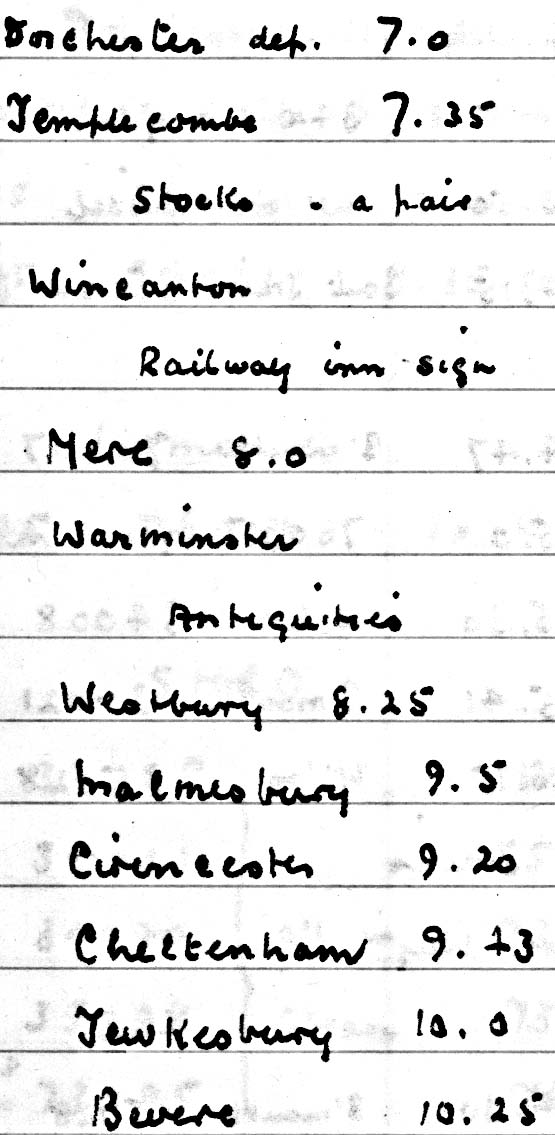 Dorchester dep. 7.0
Templecombe 7.35
Stocks - a pair
Wincanton
Railway inn sign
Mere 8.0
Warminster
Antiquities
Westbury 8.25
Malmesbury 9.5
Cirencester 9.20
Cheltenham 9.43
Tewkesbury 10.0
Bevere 10.25